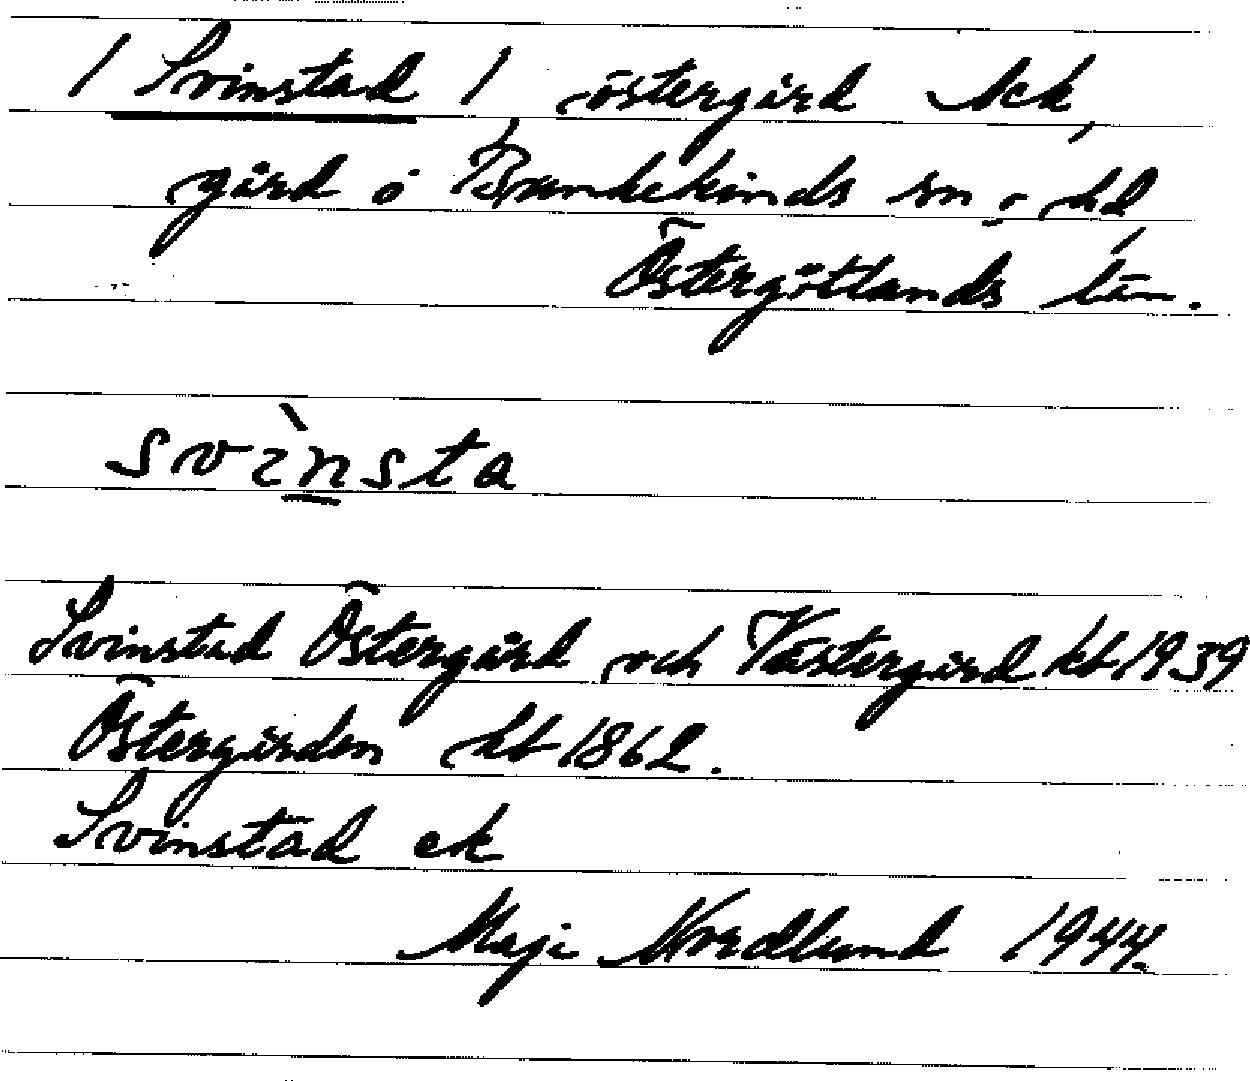 / Svinstad / östergård Ack,
gård i Bankekinds sn o. hd
Östergötlands län.
svìnsta
Svinstad Östergård och Västergård kb 1939
Östergården kb 1862.
Svinstad ek
Maji Nordlund 1944.